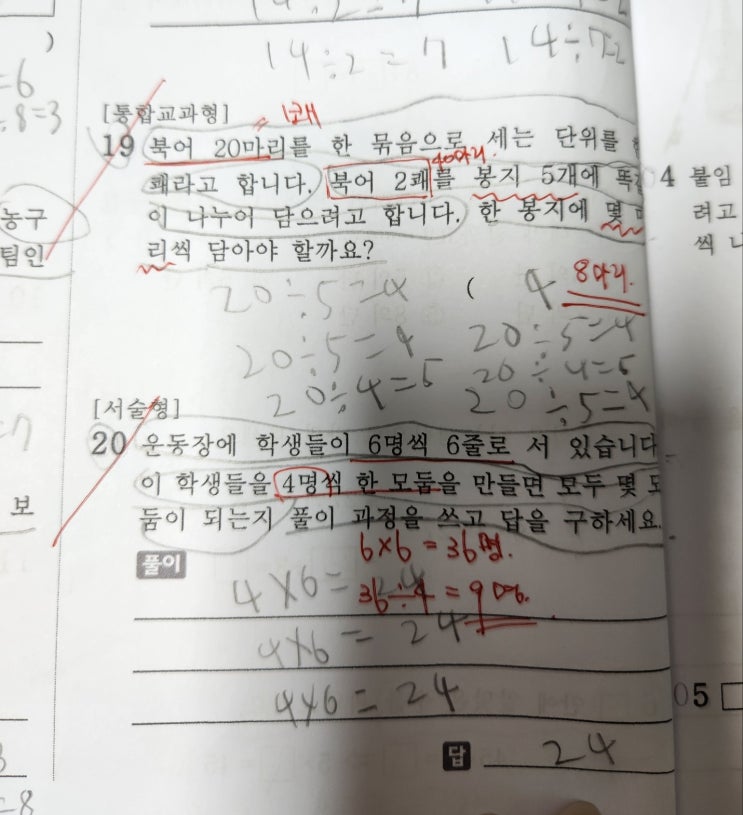 14÷2=7 14÷7=2
)
=6
÷8=3
[통합교과형]
= 1쾌
19 북어 20마리를 한 묶음으로 세는 단위를
40마리.
쾌라고 합니다. 북어 2쾌를 봉지 5개에 똑같
이 나누어 담으려고 합니다. 한 봉지에 몇 마
리씩 담아야 할까요?
20÷5=4 ( 4 8마리.
20÷5=4 20÷5=4
20÷4=5 20÷4=5
20÷5=4
농구
팀인
=7
보
=8
[서술형]
20 운동장에 학생들이 6명씩 6줄로 서 있습니다
이 학생들을 4명씩 한 모둠을 만들면 모두 몇 모
둠이 되는지 풀이 과정을 쓰고 답을 구하세요.
6×6=36명.
풀이
4×6=24
36÷4=9
4×6=24
4×6=24
답 24
4 붙임
려고
씩 나
05